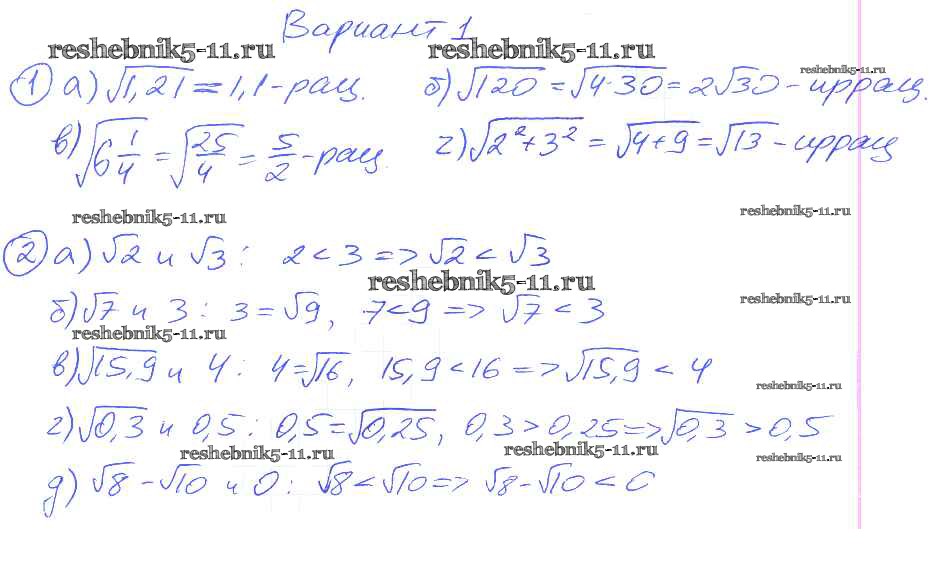 Вариант 1
reshebnik5-11.ru reshebnik5-11.ru
reshebnik5-11.ru
① а) √1,21 = 1,1 - рац. б) √120 = √4·30 = 2√30 - иррац.
в) √6 1/4 = √25/4 = 5/2 - рац. г) √2²+3² = √4+9 = √13 - иррац
reshebnik5-11.ru reshebnik5-11.ru
② а) √2 и √3 : 2 < 3 => √2 < √3
reshebnik5-11.ru
б) √7 и 3 : 3 = √9, 7 < 9 => √7 < 3
reshebnik5-11.ru
reshebnik5-11.ru
в) √15,9 и 4 : 4 = √16, 15,9 < 16 => √15,9 < 4
reshebnik5-11.ru
г) √0,3 и 0,5 : 0,5 = √0,25, 0,3 > 0,25 => √0,3 > 0,5
reshebnik5-11.ru reshebnik5-11.ru reshebnik5-11.ru
д) √8 - √10 и 0 : √8 < √10 => √8 - √10 < 0